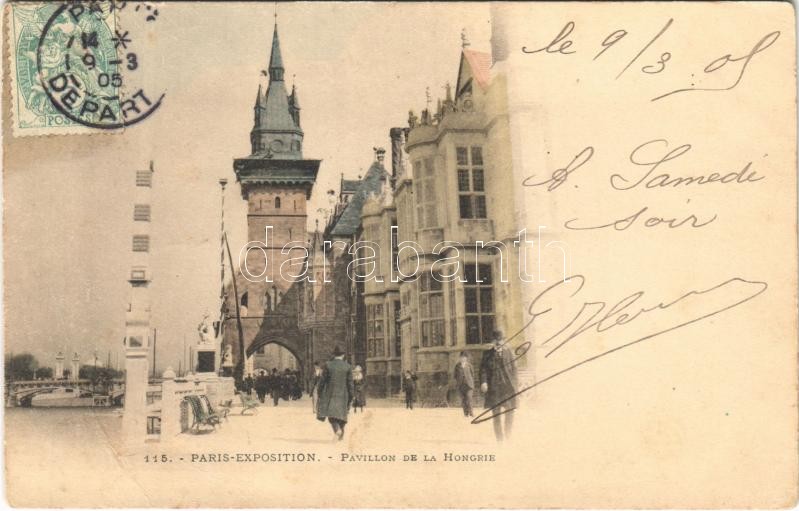 PARIS
14 *
9 - 3
05
DEPART
POSTES
le 9/3 05
A Samedi
soir
darabanth
115. - PARIS-EXPOSITION. - PAVILLON DE LA HONGRIE